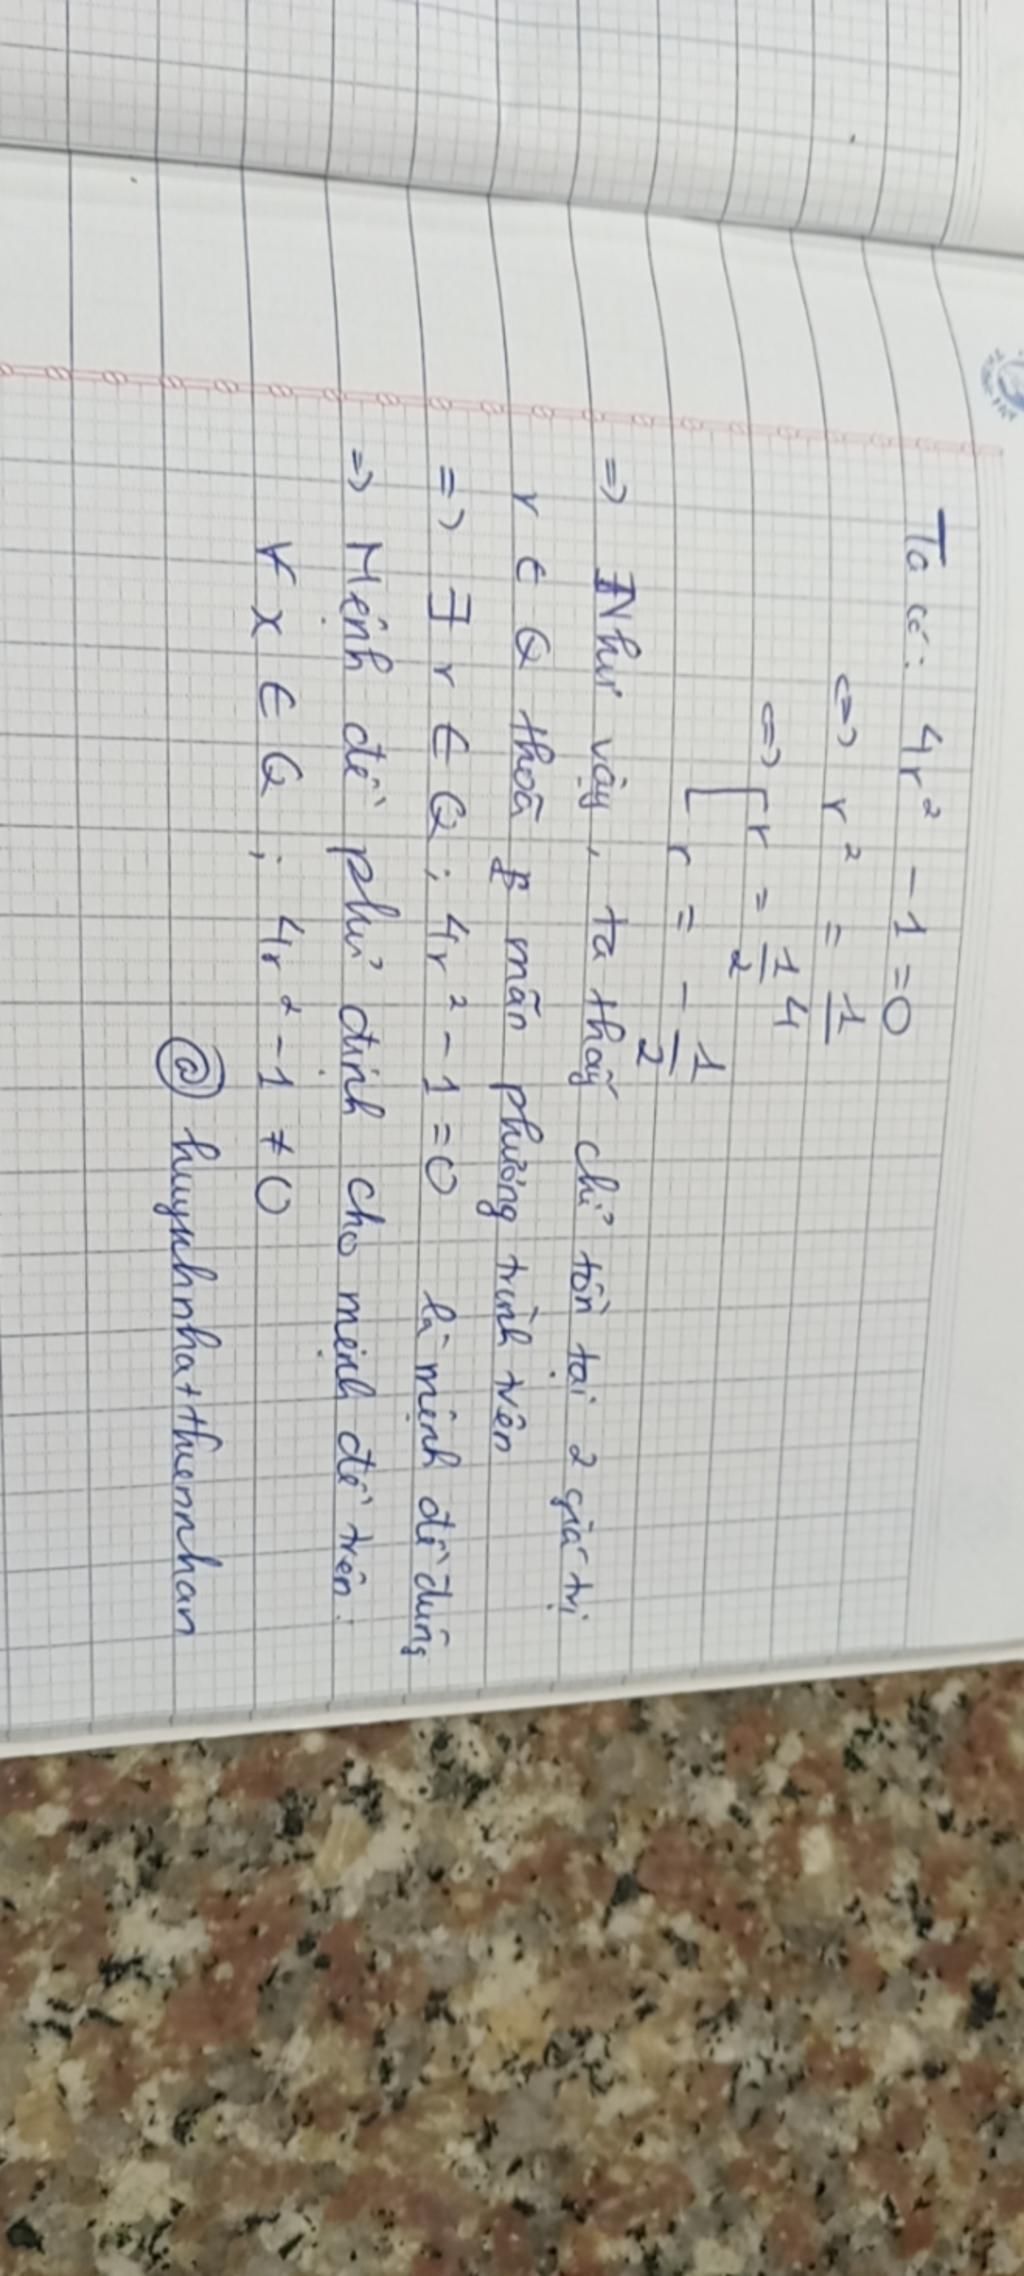 Ta có: 4r² - 1 = 0
<=> r² = 1/4
<=> [ r = 1/2
r = - 1/2
=> Như vậy, ta thấy chỉ tồn tại 2 giá trị
r ∈ Q thoã mãn phương trình trên
=> ∃ r ∈ Q ; 4r² - 1 = 0 là mệnh đề đúng
=> Mệnh đề phủ định cho mệnh đề trên:
∀ x ∈ Q ; 4r² - 1 ≠ 0
@ huynhnhatthiennhan